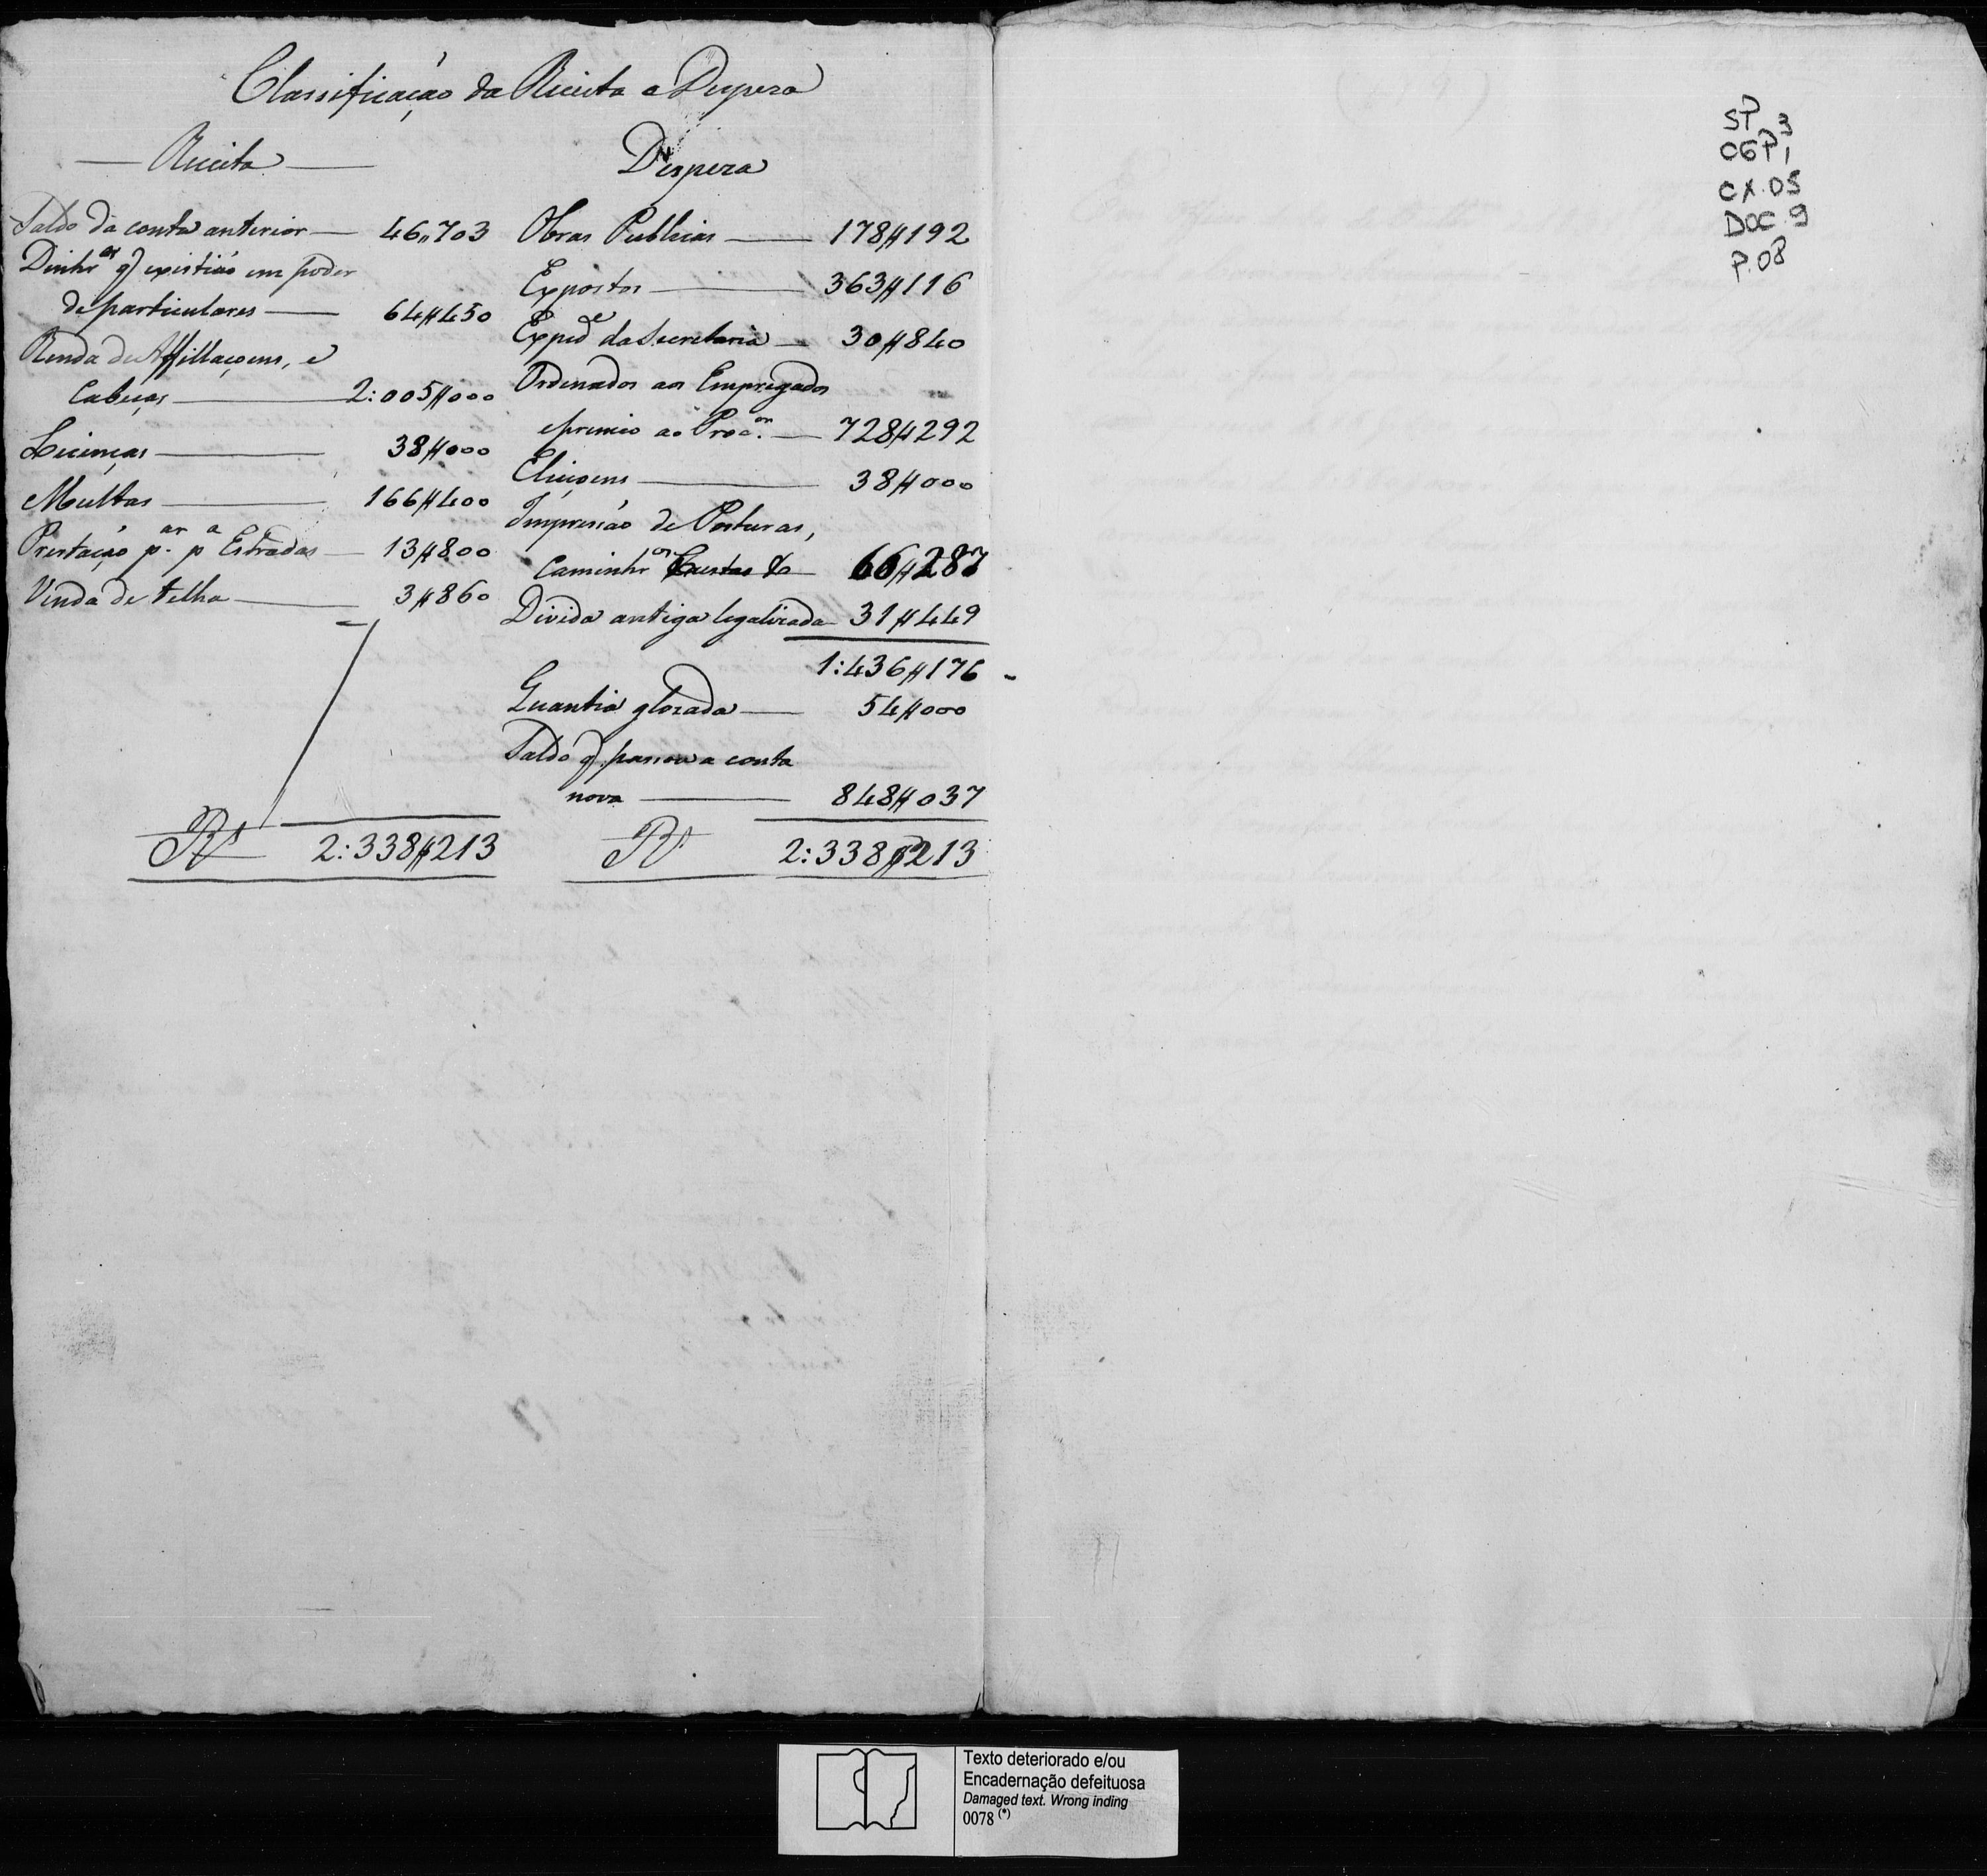 Classificação da Receita e Despeza
Receita
Saldo da conta anterior — 46,,703
Dinhros q existião em poder
de particulares — 64#450
Renda de Affillaçoens, e
Cabeças — 2:005#000
Licenças — 38#000
Multas — 166#400
Prestação par. pa Estradas — 13#800
Venda de telha — 3#860
Rs 2:338#213
Despeza
Obras Publicas — 178#192
Expostos — 363#116
Expede da Secretaria — 30#840
Ordenados aos Empregados
e premio ao Procor. — 728#292
Eleiçoens — 38#000
Impressão de Posturas,
Caminhos Custas &a — 66#287
Divida antiga legalizada 31#449
1:436#176
Quantia glozada — 54#000
Saldo q. passou a conta
nova — 848#037
Rs 2:338#213
SP
CGP1, 3
CX.05
DOC.9
P.08
Texto deteriorado e/ou
Encadernação defeituosa
Damaged text. Wrong inding
0078 (*)